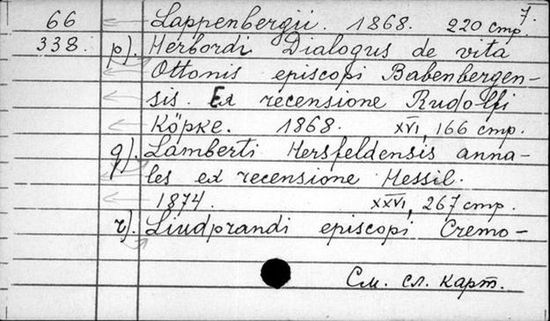 7.
66 Lappenbergii. 1868. 220 стр.
338. p). Herbordi Dialogus de vita
Ottonis episcopi Babenbergen-
sis. Ex recensione Rudolfi
Köpke. 1868. XVI, 166 стр.
q). Lamberti Hersfeldensis anna-
les ex recensione Hessil.
1874. XXVI, 267 стр.
r). Liudprandi episcopi Cremo-
См. сл. карт.